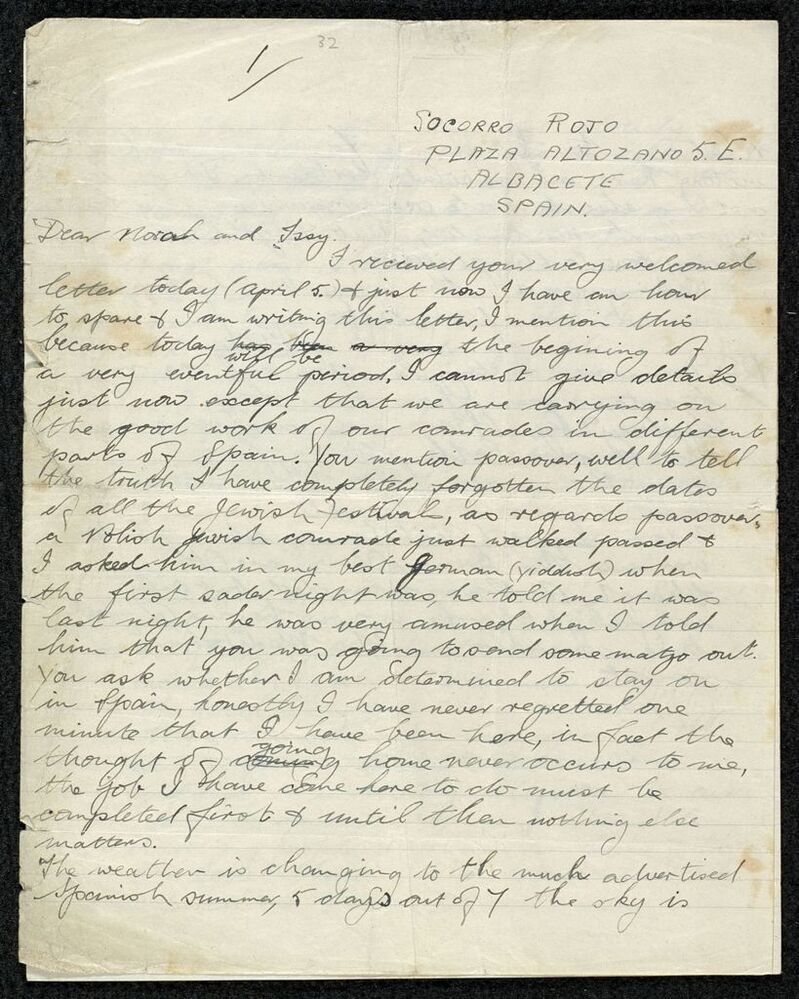 1/
32
SOCORRO ROJO
PLAZA ALTOZANO 5. E.
ALBACETE
SPAIN.
Dear Norah and Issy.
I recieved your very welcomed
letter today (april 5.) & just now I have an hour
to spare & I am writing this letter, I mention this
because today has been a very the begining of
will be
a very eventful period. I cannot give details
just now except that we are carrying on
the good work of our comrades in different
parts of Spain. You mention passover, well to tell
the truth I have completely forgotten the dates
of all the Jewish Festival, as regards passover,
a Polish Jewish comrade just walked passed &
I asked him in my best German (yiddish) when
the first sader night was, he told me it was
last night, he was very amused when I told
him that you was going to send some matzo out.
You ask whether I am determined to stay on
in Spain, honestly I have never regretted one
minute that I have been here, in fact the
going
thought of coming home never occurs to me,
the job I have come here to do must be
completed first & until then nothing else
matters.
The weather is changing to the much advertised
Spanish summer, 5 days out of 7 the sky is